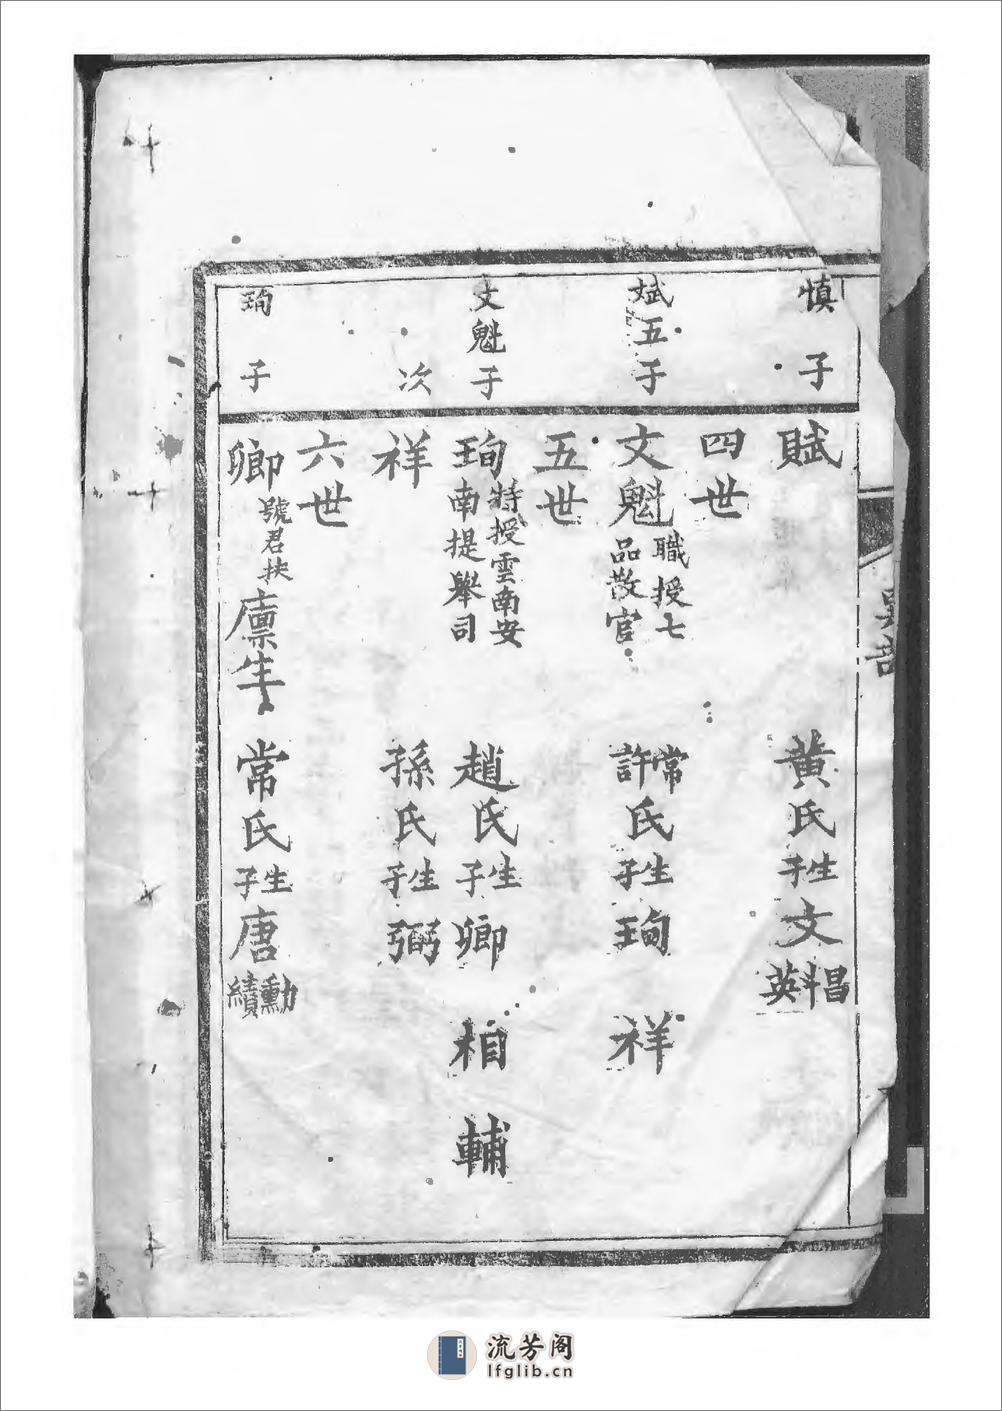 慎子
賦 黃氏生子文 昌 科 英
四世
斌五子
文魁 職授七品散官 常 許氏生子珣 祥
五世
文魁子
珣 特授雲南安南提舉司 趙氏生子卿 相 輔
次
祥 孫氏生子弼
六世
珣子
卿 號君扶 廩生 常氏生子唐 勳 績
流芳阁
lfglib.cn